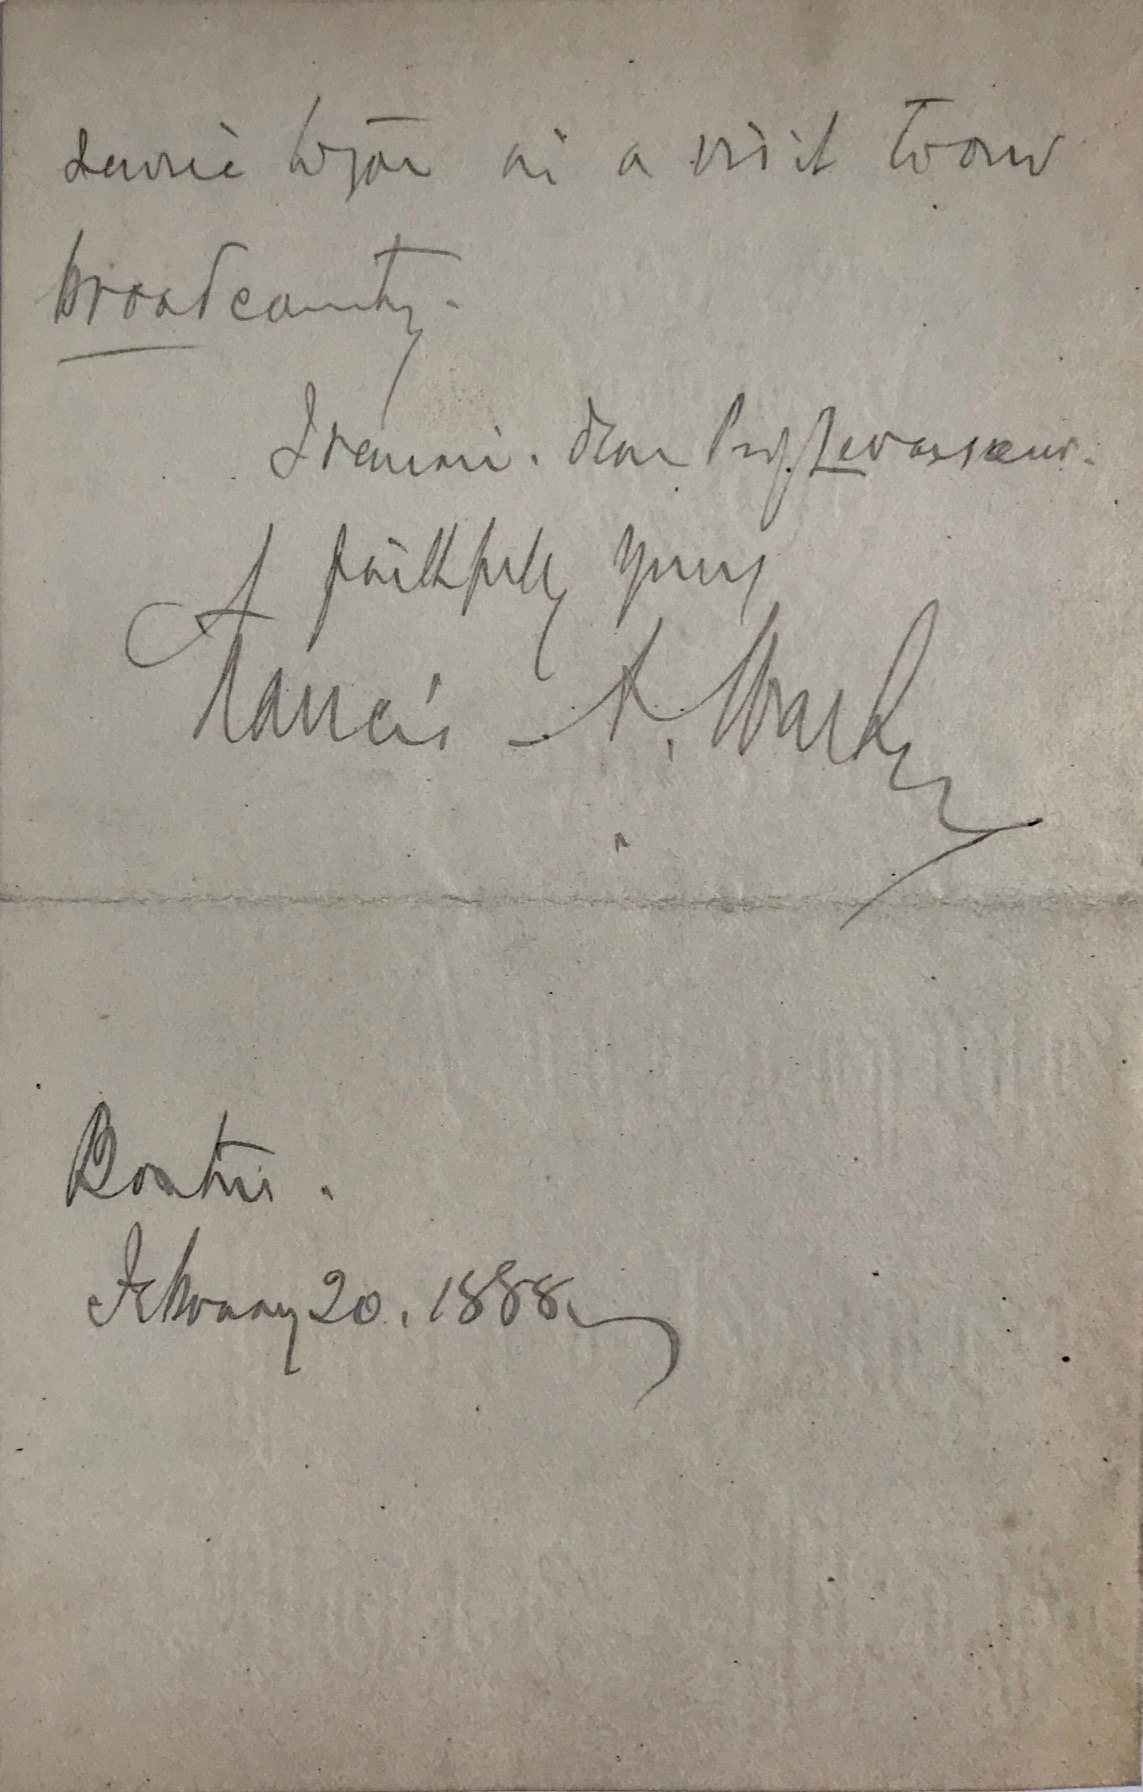 service to you in a visit to our
broad country.
I remain, dear Prof Levasseur.
faithfully yours
Francis A. Walker
Boston.
February 20, 1888.